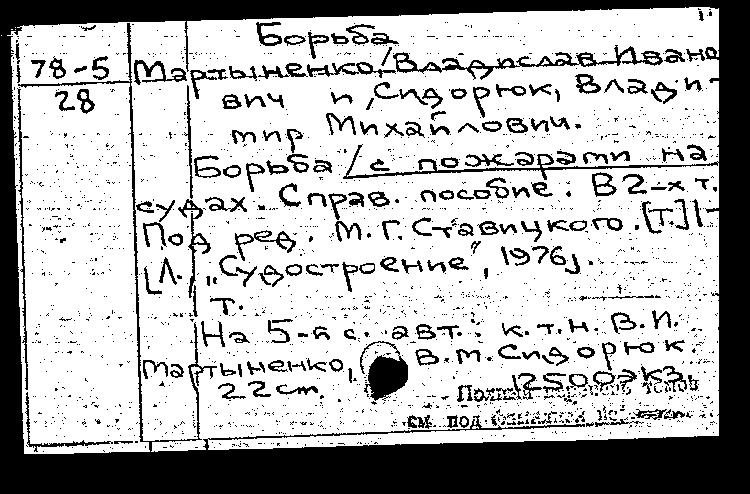 Борьба
78-5 Мартыненко, Владислав Ивано
28 вич и Сидорюк, Влади-
мир Михайлович.
Борьба / с пожарами на
судах. Справ. пособие. В 2-х т.
Под ред. М.Г. Ставицкого. [Т.] 1-
[Л., "Судостроение", 1976].
Т.
На 5-й с. авт.: к.т.н. В.И.
Мартыненко, В.М. Сидорюк.
22 см. 12500 экз.
Полный перечень томов
см. под